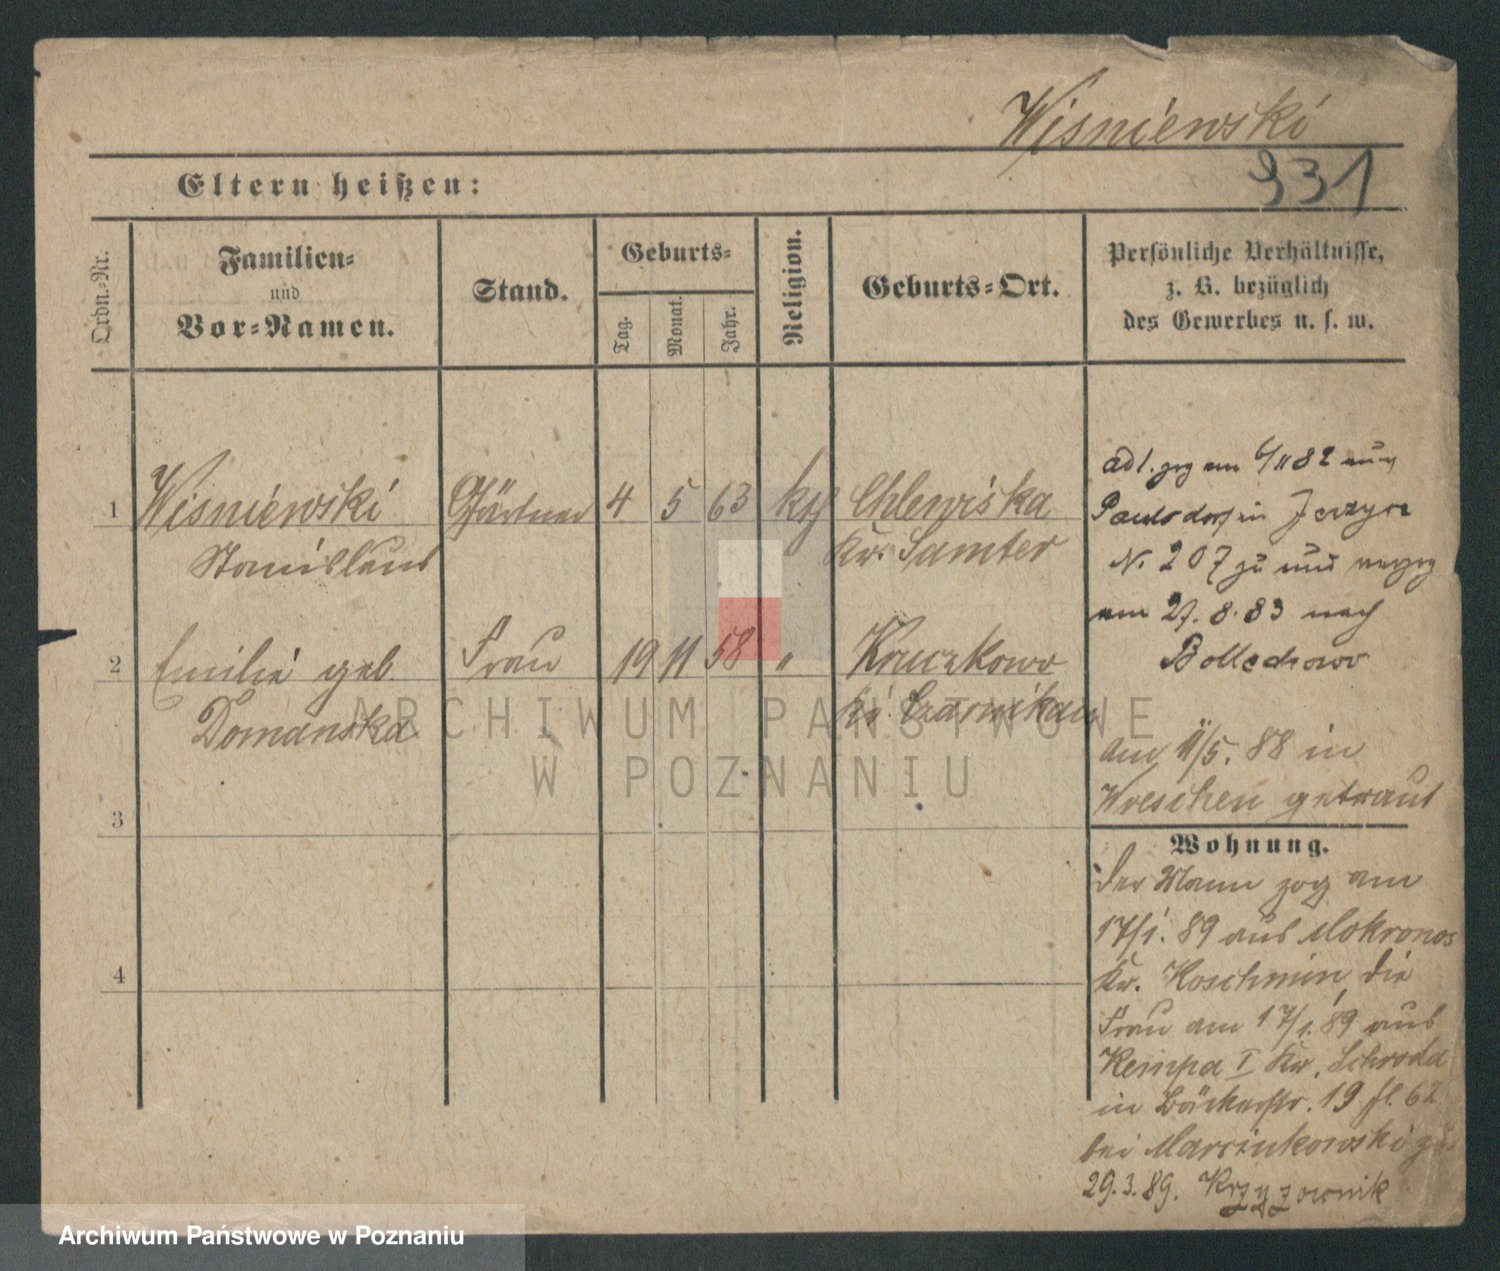 Wisniewski
931
Eltern heißen:
Ordn.-Nr.
Familien-
und
Vor-Namen.
Stand.
Geburts-
Tag.
Monat.
Jahr.
Religion.
Geburts-Ort.
Persönliche Verhältnisse,
z. B. bezüglich
des Gewerbes u. s. w.
1 Wisniewski Gärtner 4 5 63 kth Chlewiska
Stanislaus Kr. Samter
2 Emilie geb. Frau 19 11 58 " Kruczkowo
Domanska Kr. Czarnikau
3
4
zog am 6/11 82 aus
Paulsdorf in Jerzyce
N. 207 zu und verzog
am 27. 8. 83 nach
Bollechowo
am 11/5. 88 in
Wreschen getraut
Wohnung.
Der Mann zog am
17/1. 89 aus Mokronos
Kr. Koschmin, die
Frau am 17/1. 89 aus
Kempa I Kr. Schroda
in Bäckerstr. 19 fl. 62
bei Marcinkowski zu
29.3.89. Krzyzownik
ARCHIWUM PAŃSTWOWE
W POZNANIU
Archiwum Państwowe w Poznaniu